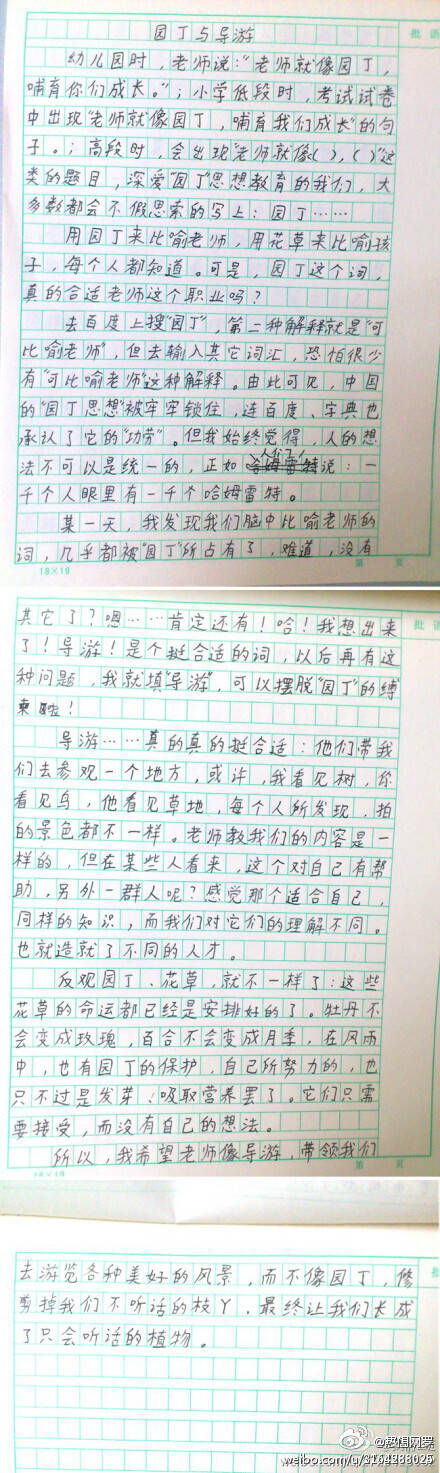 园丁与导游
批语
幼儿园时，老师说："老师就像园丁，
哺育你们成长。"；小学低段时，考试试卷
中出现"老师就像园丁，哺育我们成长"的句
子。；高段时，会出现"老师就像( )，( )"这
类的题目，深爱"园丁"思想教育的我们，大
多数都会不假思索的写上：园丁……
用园丁来比喻老师，用花草来比喻孩
子，每个人都知道。可是，园丁这个词，
真的合适老师这个职业吗？
去百度上搜"园丁"，第二种解释就是"可
比喻老师"，但去输入其它词汇，恐怕很少
有"可比喻老师"这种解释。由此可见，中国
的"园丁思想"被牢牢锁住，连百度、字典也
承认了它的"功劳"。但我始终觉得，人的想
法不可以是统一的，正如人们哈姆雷特说：一
千个人眼里有一千个哈姆雷特。
某一天，我发现我们脑中比喻老师的
词，几乎都被"园丁"所占有了，难道，没有
18×19
第 页
其它了？嗯……肯定还有！哈！我想出来
批语
了！导游！是个挺合适的词，以后再有这
种问题，我就填"导游"，可以摆脱"园丁"的缚
束啦！
导游……真的真的挺合适：他们带我
们去参观一个地方，或许，我看见树，你
看见鸟，他看见草地，每个人所发现，拍
的景色都不一样。老师教我们的内容是一
样的，但在某些人看来，这个对自己有帮
助，另外一群人呢？感觉那个适合自己，
同样的知识，而我们对它们的理解不同。
也就造就了不同的人才。
反观园丁、花草，就不一样了：这些
花草的命运都已经是安排好的了。牡丹不
会变成玫瑰，百合不会变成月季，在风雨
中，也有园丁的保护，自己所努力的，也
只不过是发芽、吸取营养罢了。它们只需
要接受，而没有自己的想法。
所以，我希望老师像导游，带领我们
18×19
第 页
去游览各种美好的风景，而不像园丁，修
批
剪掉我们不听话的枝丫，最终让我们长成
了只会听话的植物。
weibo.com/u/3164288025